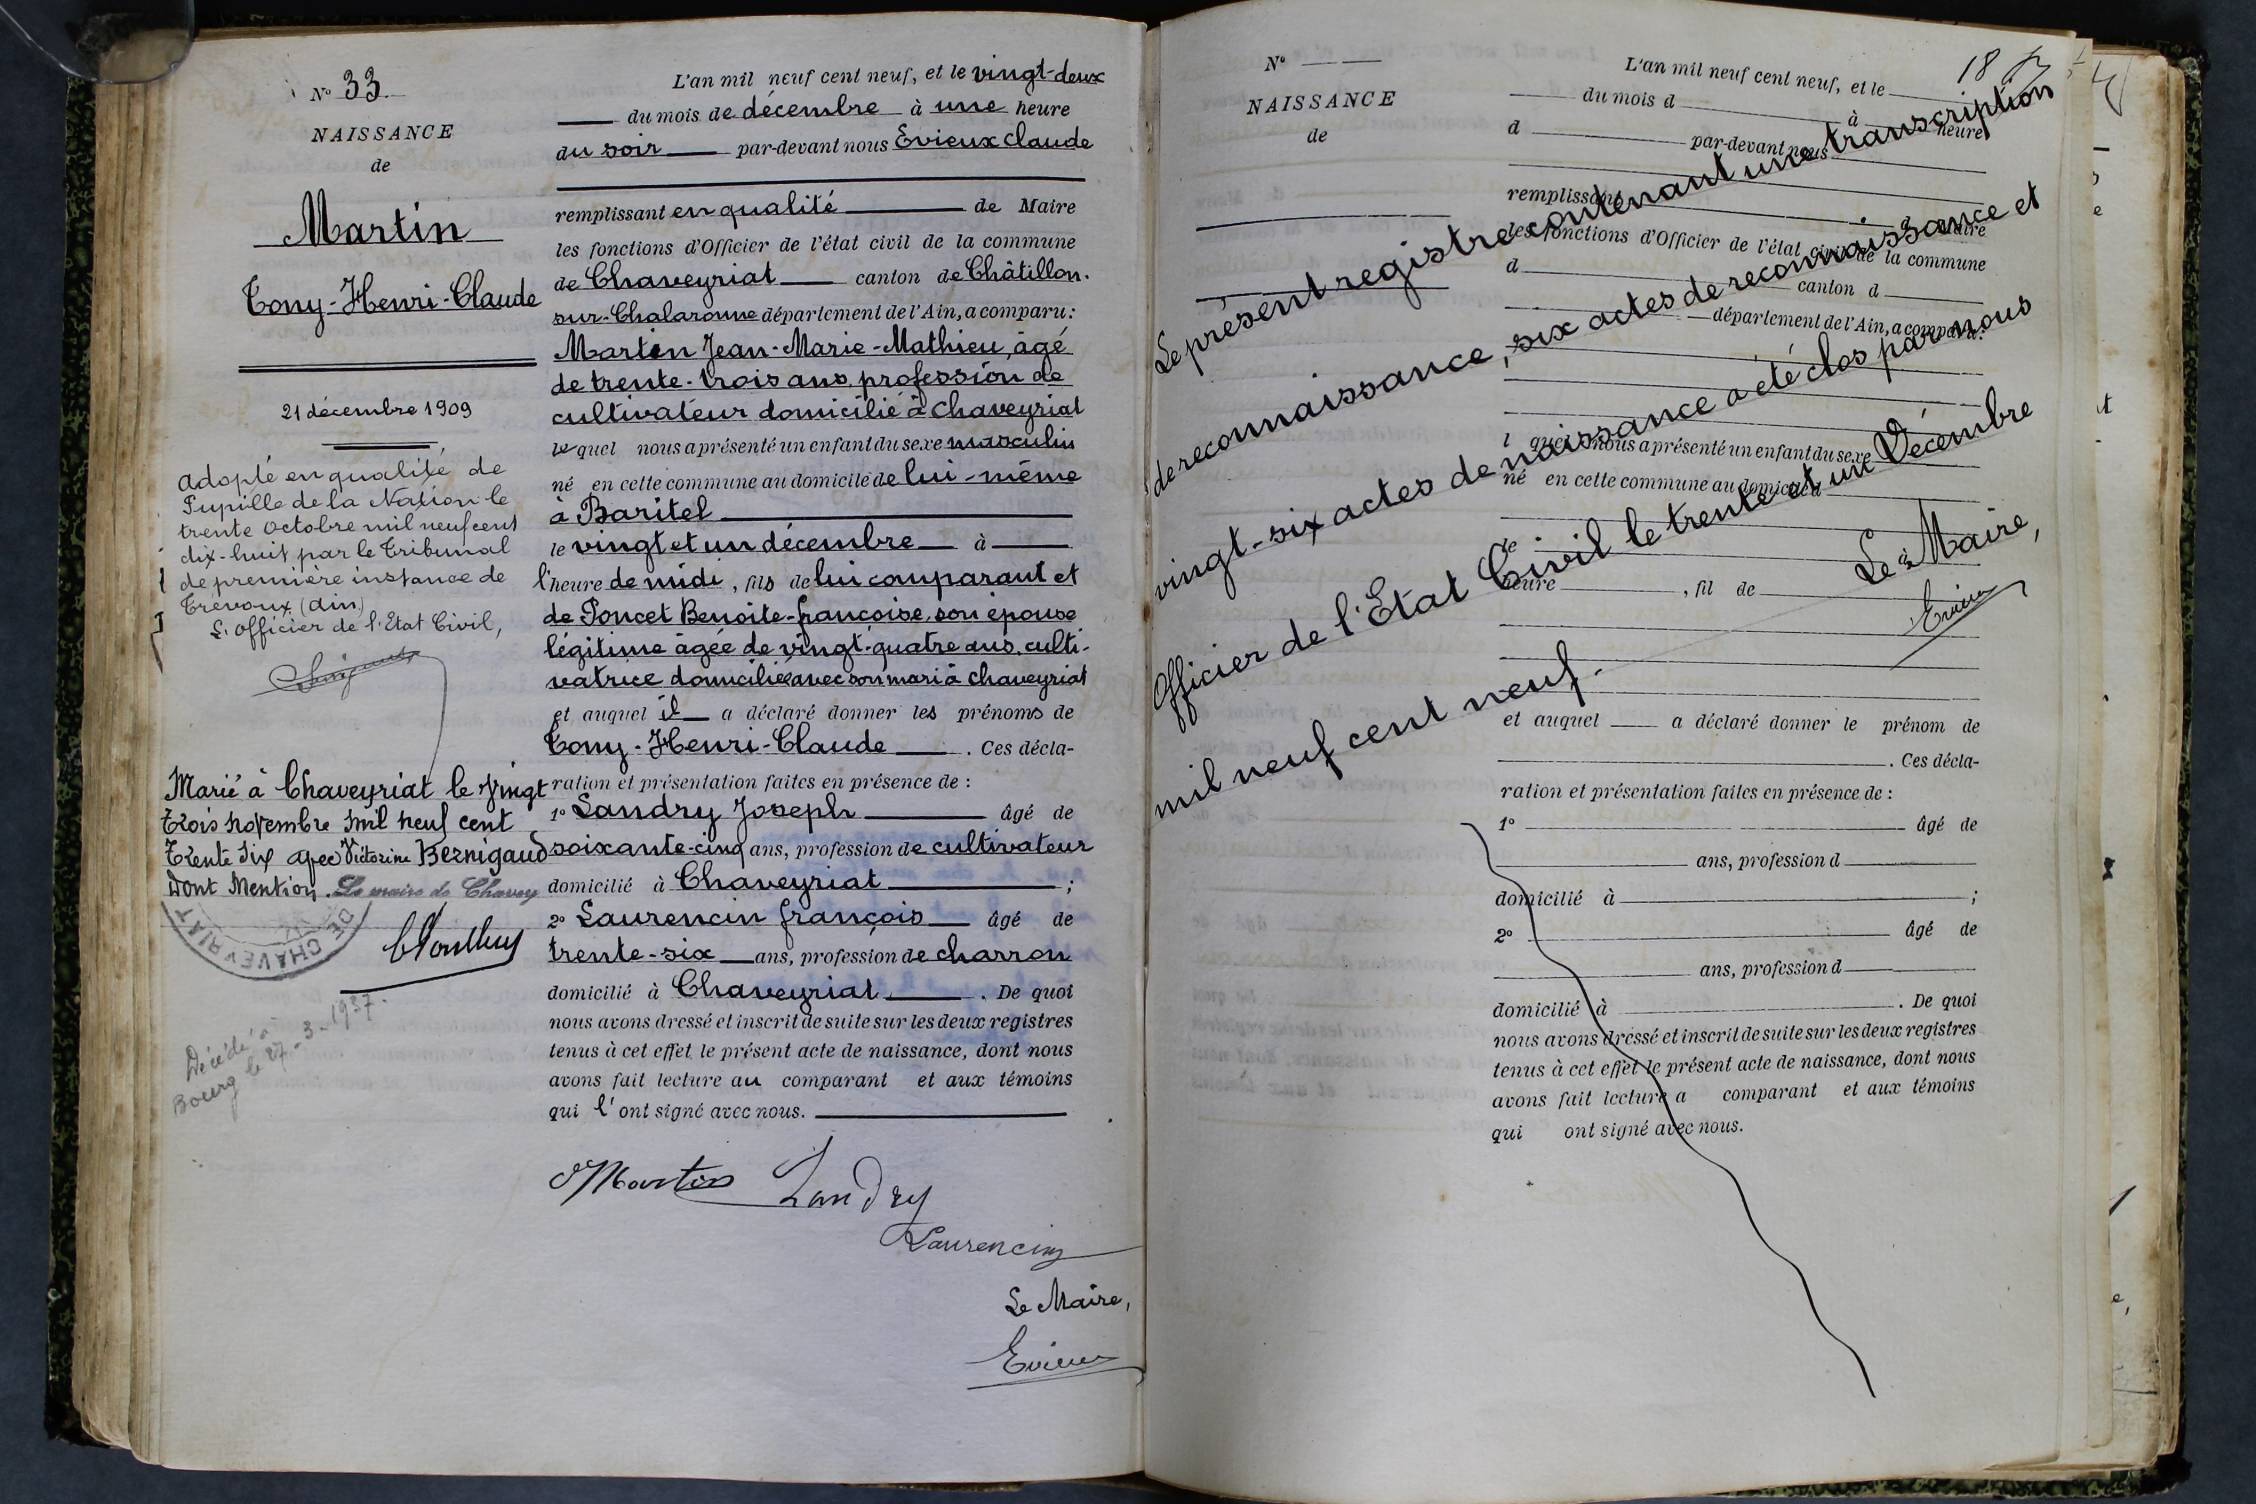 N° 33
NAISSANCE
de
Martin
Tony-Henri-Claude
21 décembre 1909
Adopté en qualité de
Pupille de la Nation le
trente Octobre mil neuf cent
dix-huit par le Tribunal
de première instance de
Trévoux (Ain)
L'Officier de l'Etat Civil,
Marié à Chaveyriat le vingt
trois novembre mil neuf cent
trente six avec Victorine Bernigaud
Dont Mention. Le maire de Chavey
DE CHAVEYRIAT
Décédé à
Bourg le 27-3-1937.
L'an mil neuf cent neuf, et le vingt-deux
du mois de décembre à une heure
du soir par-devant nous Evieux Claude
remplissant en qualité de Maire
les fonctions d'Officier de l'état civil de la commune
de Chaveyriat canton de Châtillon-
sur-Chalaronne département de l'Ain, a comparu:
Martin Jean-Marie-Mathieu, âgé
de trente-trois ans, profession de
cultivateur domicilié à Chaveyriat
lequel nous a présenté un enfant du sexe masculin
né en cette commune au domicile de lui-même
à Baritel
le vingt et un décembre à
l'heure de midi, fils de lui comparant et
de Poncet Benoite-françoise, son épouse
légitime âgée de vingt-quatre ans, culti-
vatrice domiciliée avec son mari à Chaveyriat
et auquel il a déclaré donner les prénoms de
Tony-Henri-Claude. Ces décla-
ration et présentation faites en présence de :
1° Landry Joseph âgé de
soixante-cinq ans, profession de cultivateur
domicilié à Chaveyriat ;
2° Laurencin françois âgé de
trente-six ans, profession de charron
domicilié à Chaveyriat. De quoi
nous avons dressé et inscrit de suite sur les deux registres
tenus à cet effet le présent acte de naissance, dont nous
avons fait lecture au comparant et aux témoins
qui l'ont signé avec nous.
Martin Landry
Laurencin
Le Maire,
Evieux
18
N°
NAISSANCE
de
L'an mil neuf cent neuf, et le
du mois d à heure
d par-devant nous
remplissant d Maire
les fonctions d'Officier de l'état civil de la commune
d canton d
département de l'Ain, a comparu:
l quel nous a présenté un enfant du sexe
né en cette commune au domicile d
le à
heure , fil de
et auquel a déclaré donner le prénom de
. Ces décla-
ration et présentation faites en présence de :
1° âgé de
ans, profession d
domicilié à ;
2° âgé de
ans, profession d
domicilié à . De quoi
nous avons dressé et inscrit de suite sur les deux registres
tenus à cet effet le présent acte de naissance, dont nous
avons fait lecture a comparant et aux témoins
qui ont signé avec nous.
Le présent registre contenant une transcription
de reconnaissance, six actes de reconnaissance et
vingt-six actes de naissance a été clos par nous
Officier de l'Etat Civil le trente et un Décembre
mil neuf cent neuf.
Le Maire,
Evieux